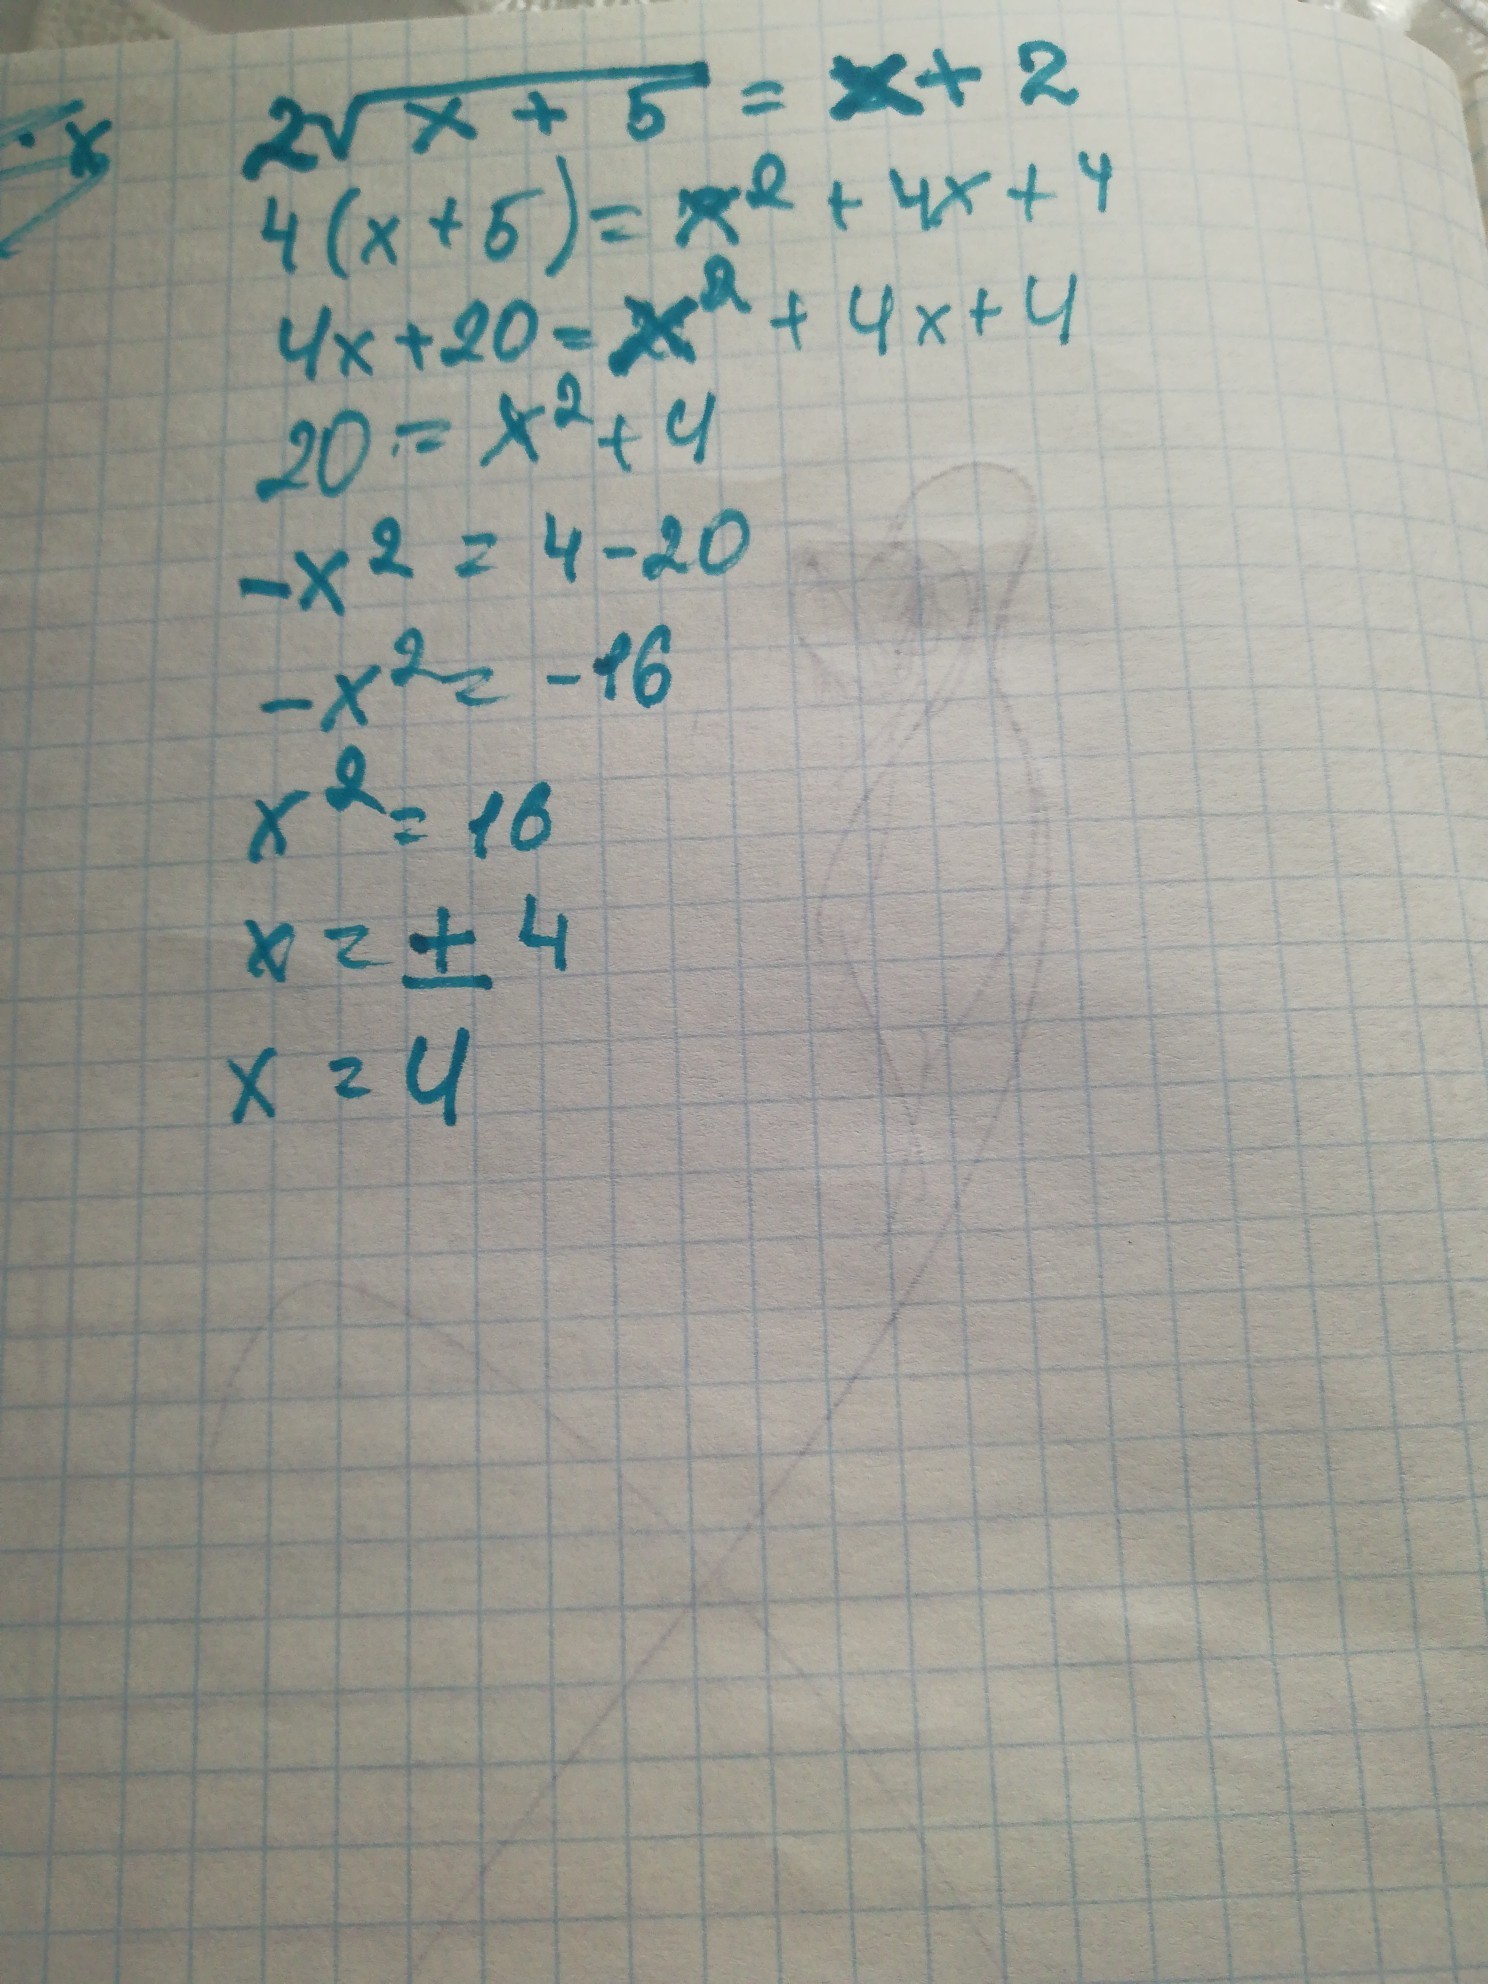 · x
2√(x + 5) = x + 2
4(x + 5) = x² + 4x + 4
4x + 20 = x² + 4x + 4
20 = x² + 4
-x² = 4 - 20
-x² = -16
x² = 16
x = ± 4
x = 4